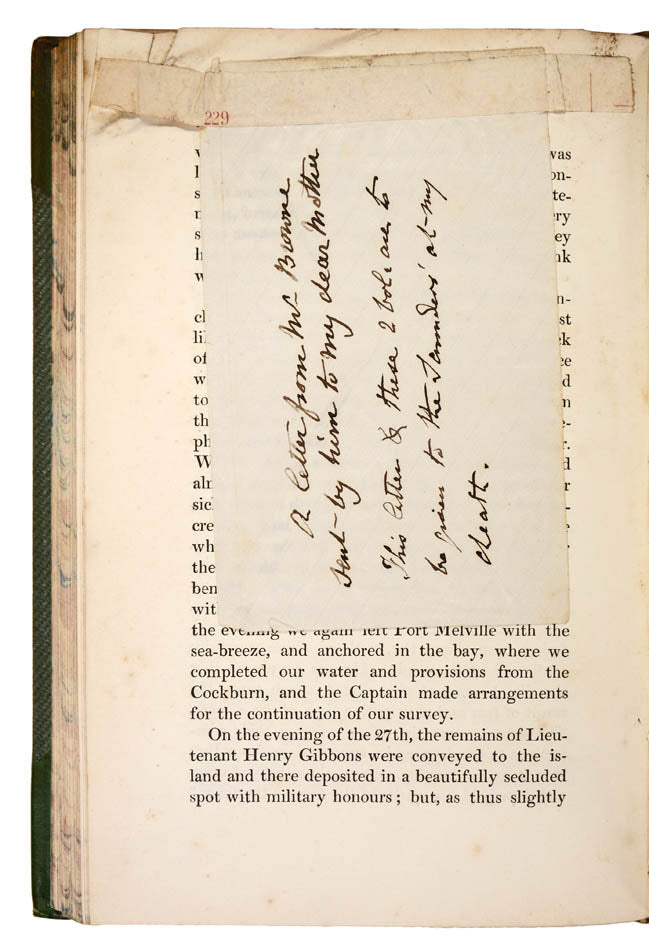 229
A letter from Mr Browne
sent by him to my dear Mother
This letter & these 2 vols are to
be given to the Saunders' at my
death.
was
on-
te-
ery
ey
nk
n-
st
ck
ce
d
n
e-
r.
d
r
-
.
cl
li
of
w
to
th
ph
W
alr
sic
cre
wh
the
ben
wit
the evening we again left Port Melville with the
sea-breeze, and anchored in the bay, where we
completed our water and provisions from the
Cockburn, and the Captain made arrangements
for the continuation of our survey.
On the evening of the 27th, the remains of Lieu-
tenant Henry Gibbons were conveyed to the is-
land and there deposited in a beautifully secluded
spot with military honours; but, as thus slightly